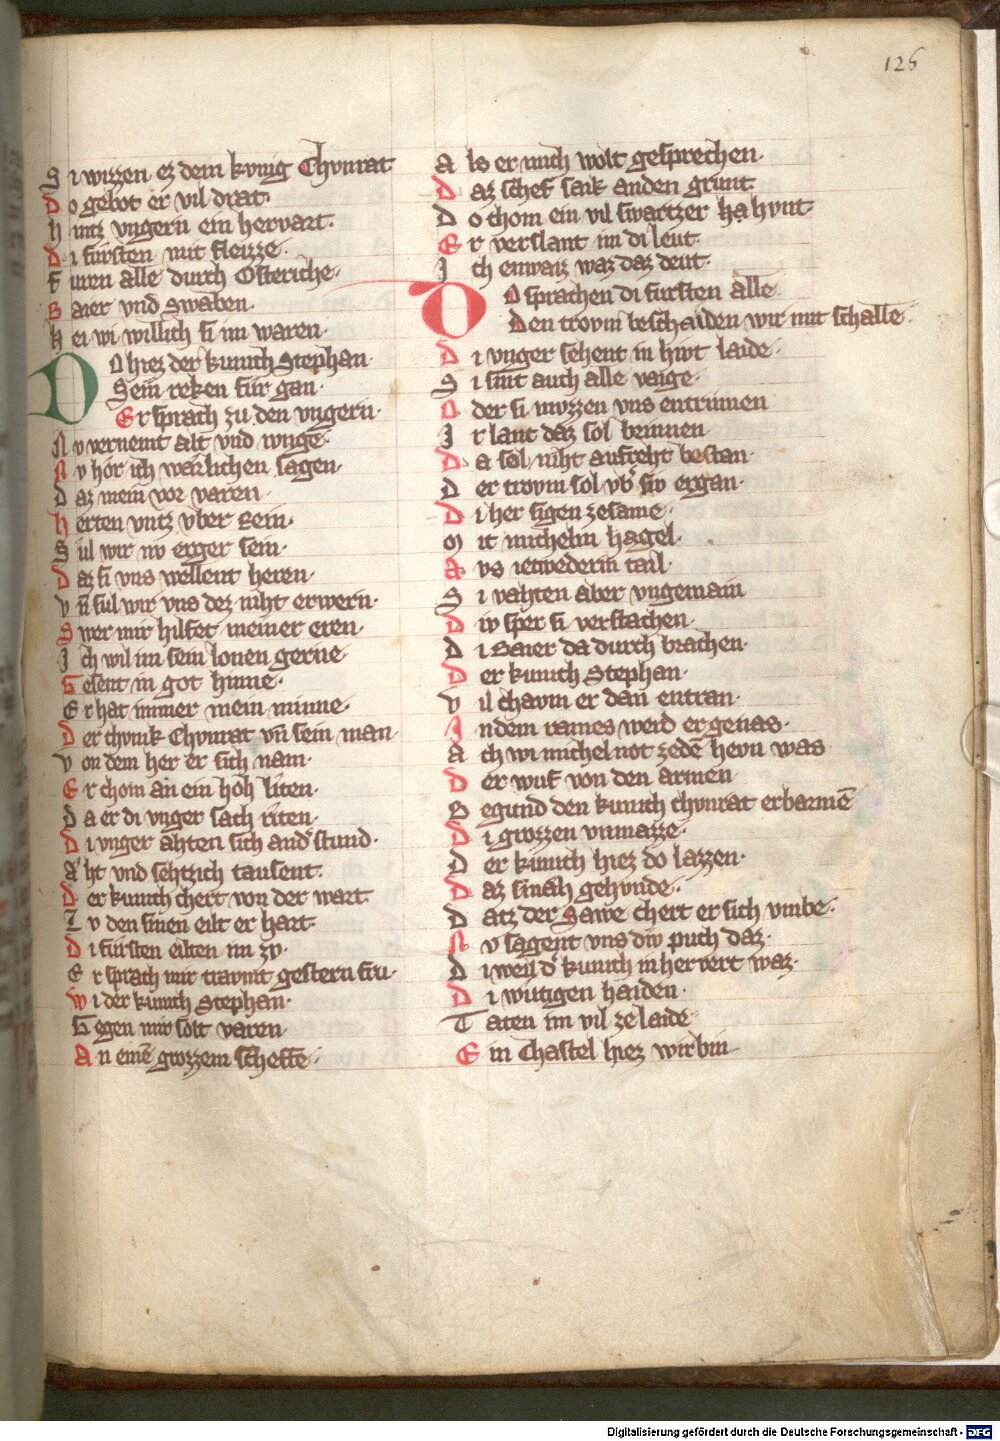 126
Si wizzen ez dem kvnig Chvnrat
Do gebot er vil drat.
Hintz vngern ein hervart.
Di fursten mit fleizze.
Furen alle durch Osteriche.
Baier vnd Swaben.
Hei wi willich si im waren.
DO hiez der kunich Stephan.
Sein reken fur gan.
Er sprach zu den vngern.
Nv vernemt alt vnd iunge.
Nv hor ich warlichen sagen.
Daz mein vor varen.
Herten vntz vber Rein.
Sul wir nv erger sein.
Daz si vns wellent heren.
Vñ sul wir vns dez niht erwern.
Swer mir hilfet meiner eren.
Ich wil im sein lonen gerne.
Gesent in got hinne.
Er hat immer mein minne.
Der chvnik Chvnrat vñ sein man.
Von dem her er sich nam.
Er chom an ein hoh liten.
Da er di vnger sach riten.
Di vnger ahten sich and' stund.
Aht vnd sehtzich tausent.
Der kunich chert von der wart.
Zv den sinen eilt er hart.
Di fursten eilten im zv.
Er sprach mir traumt gestern fru.
Wi der kunich Stephan.
Gegen mir solt varen.
An eimē grozzem scheffe.
Als er mich wolt gesprechen.
Daz schef saik an den grunt.
Do chom ein vil swartzer hahvnt.
Er verslant im di leut.
Ich enwaiz waz daz deut.
DO sprachen di fursten alle.
Den trovm beschaiden wir mit schalle.
Di vnger sehent in hivt laide.
Si sint auch alle vaige.
Oder si mvzzen vns entrinnen
Ir lant daz sol brinnen.
Da sol niht aufreht bestan.
Der trovm sol vb' siv ergan.
Di her sigen zesame.
Mit michelm hagel.
Avs ietwederm tail.
Si vahten aber vngemain
Div sper si verstachen.
Di Baier da durch brachen.
Der kunich Stephan.
Vil chavm er dan entran.
In dem rames werd er genas.
Ach wi michel not zedē hevn was
Der wuf von den armen
Begund den kunich chvnrat erbarmē
Di grozzen vnmazze.
Der kunich hiez do lazzen.
Daz si nah gehvnde.
Datz der Sawe chert er sich vmbe.
Nv sagent vns div puch daz.
Di weil d' kunich in hervert waz.
Di wutigen haiden.
Taten im vil ze laide.
Ein Chastel hiez wirbin.
Digitalisierung gefördert durch die Deutsche Forschungsgemeinschaft - DFG